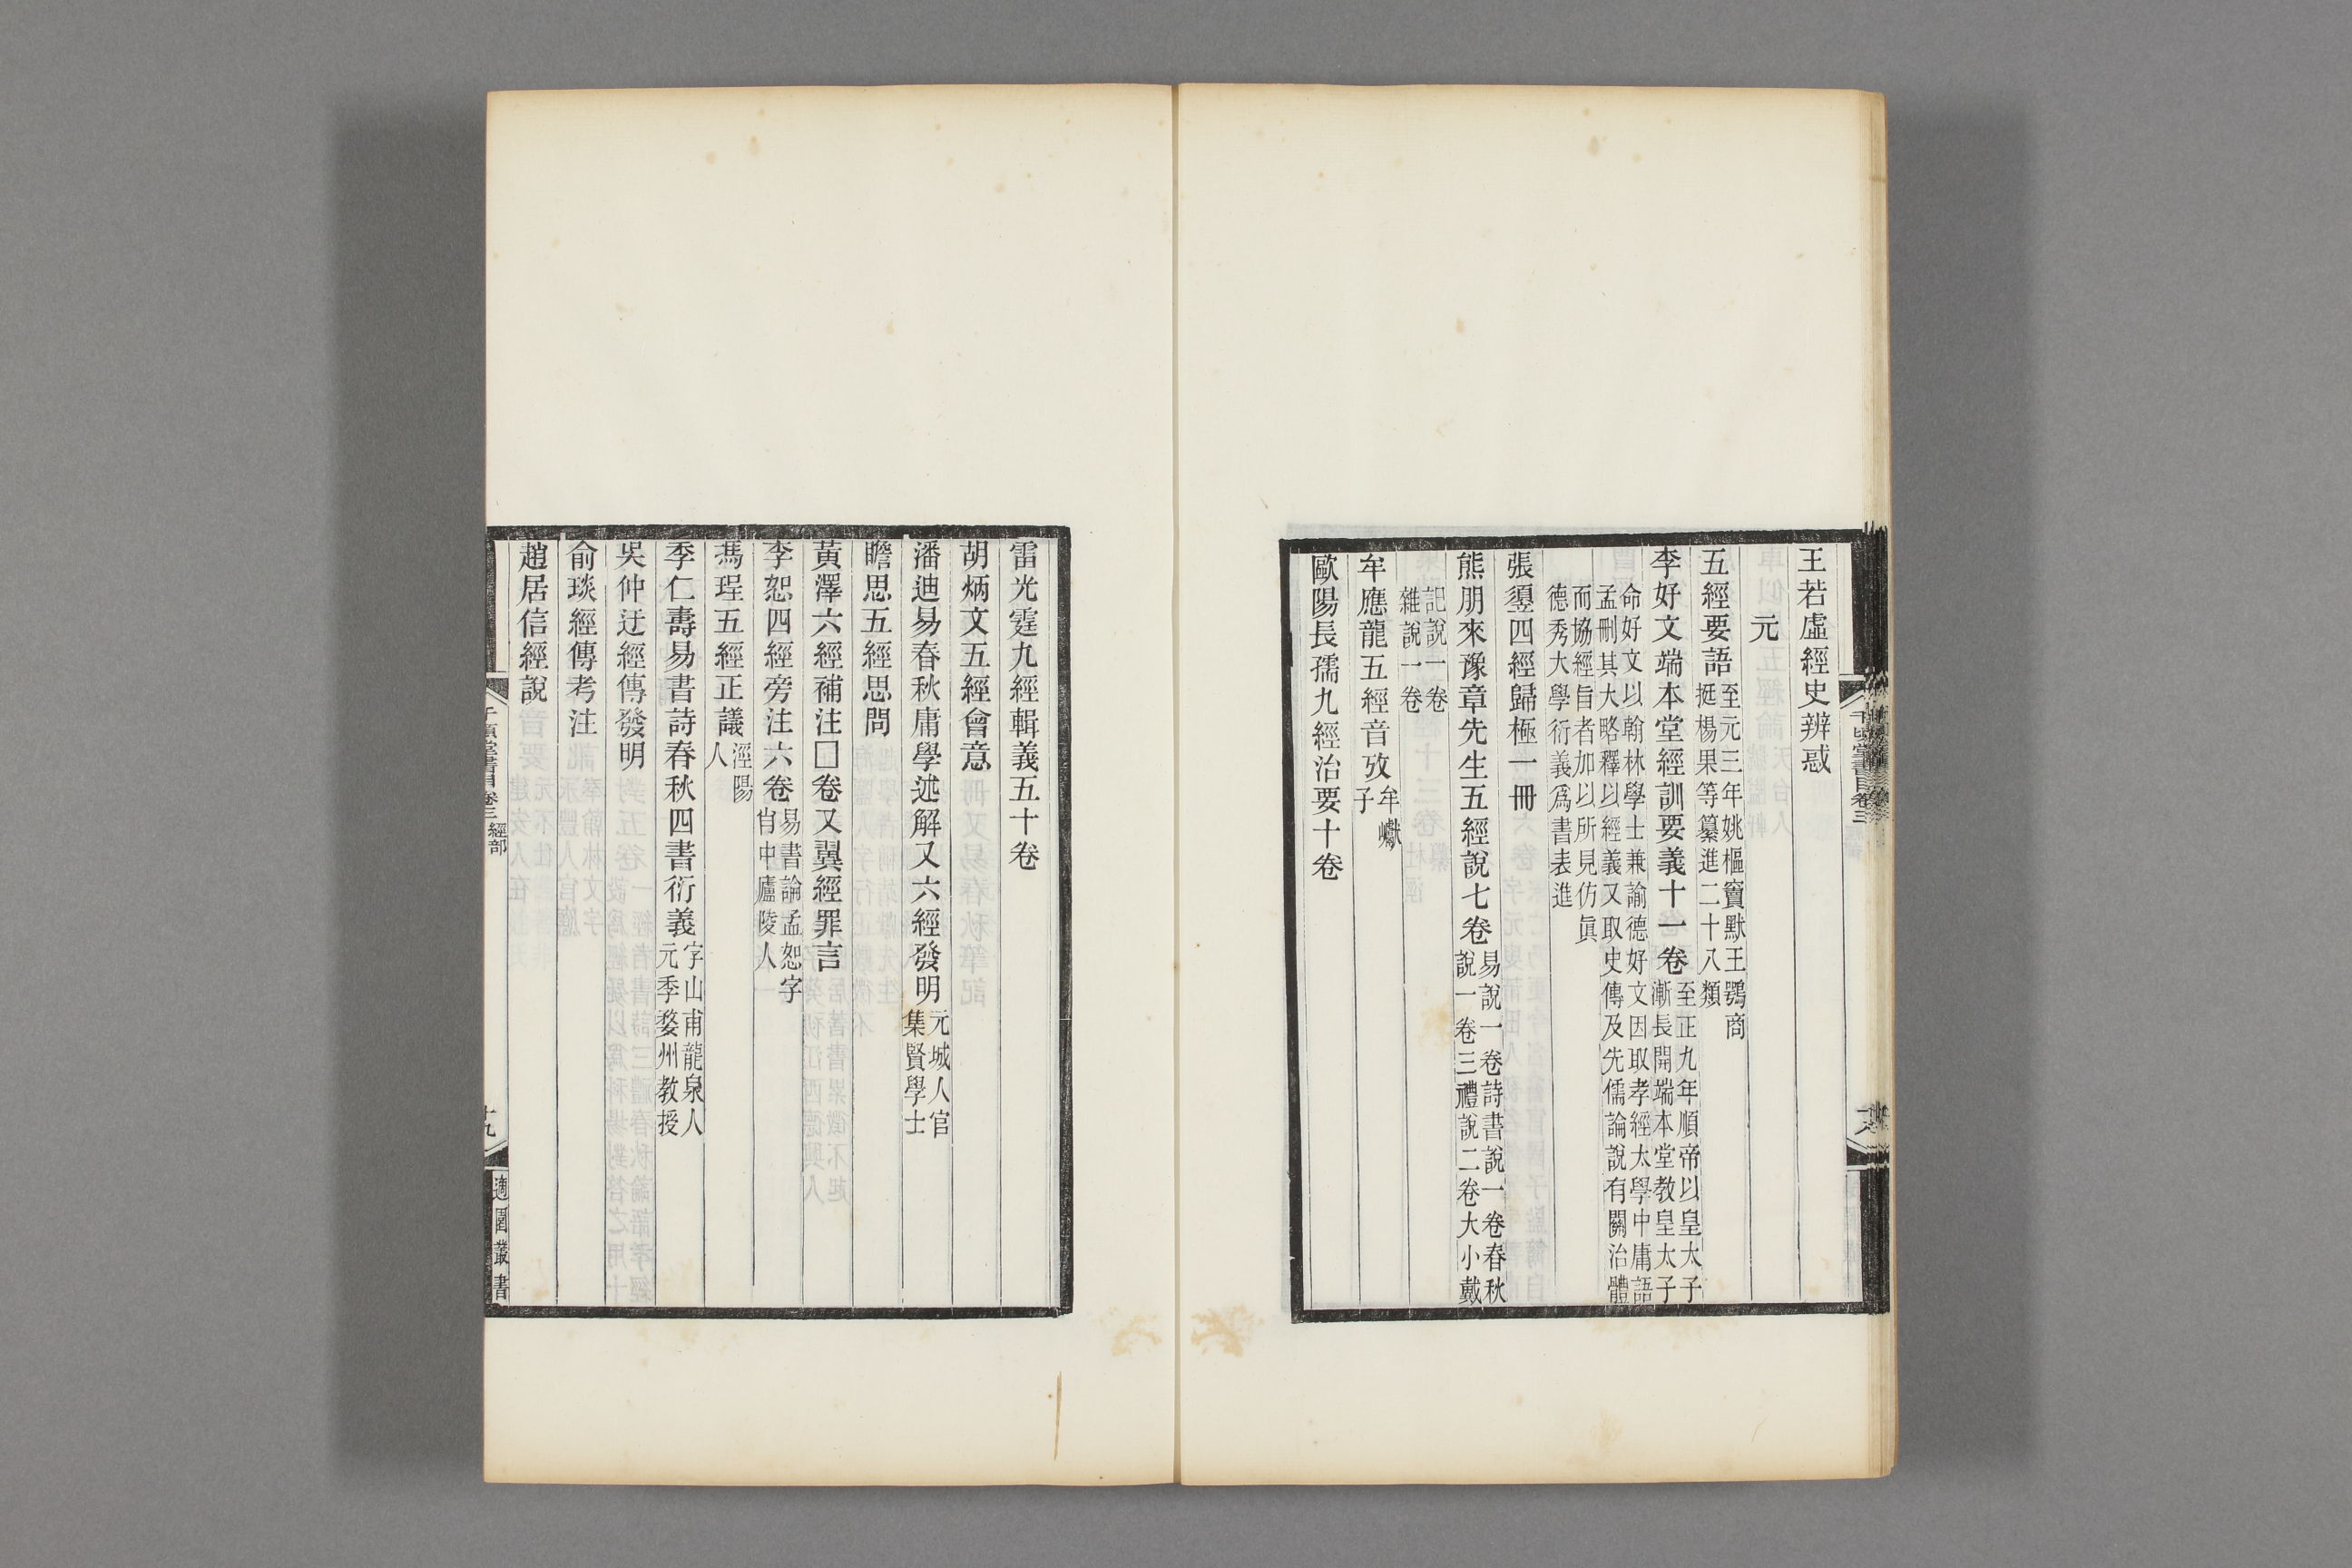 王若虛經史辨惑
元
五經要語至元三年姚樞竇默王鶚商挺楊果等纂進二十八類
李好文端本堂經訓要義十一卷至正九年順帝以皇太子漸長開端本堂教皇太子
命好文以翰林學士兼諭德好文因取孝經大學中庸語孟刪其大略釋以經義又取史傳及先儒論說有關治體
而協經旨者加以所見仿眞德秀大學衍義爲書表進
張𦈡四經歸極一冊
熊朋來豫章先生五經說七卷易說一卷詩書說一卷春秋說一卷三禮說二卷大小戴
記說一卷雜說一卷
牟應龍五經音攷牟巘子
歐陽長孺九經治要十卷
千頃堂書目卷三
十八
雷光霆九經輯義五十卷
胡炳文五經會意
潘迪易春秋庸學述解又六經發明元城人官集賢學士
瞻思五經思問
黃澤六經補注□卷又翼經罪言
李恕四經旁注六卷易書論孟恕字肖中廬陵人
馮珵五經正議涇陽人
季仁壽易書詩春秋四書衍義字山甫龍泉人元季婺州教授
吳仲迂經傳發明
俞琰經傳考注
趙居信經說
千頃堂書目卷三 經部
十九
適園叢書